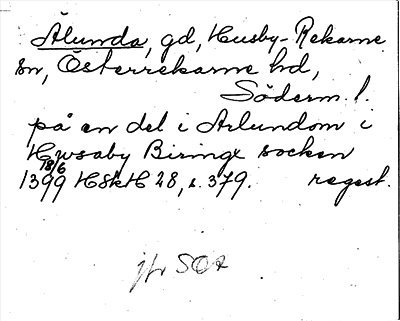 Ålunda, gd, Husby-Rekarne
sn, Österrekarne hd,
Söderm. l.
på en del i Arlundom i
Hwsaby Biringx socken
18/6
1399 HSkH 28, s. 379. regest.
jfr SOÄ